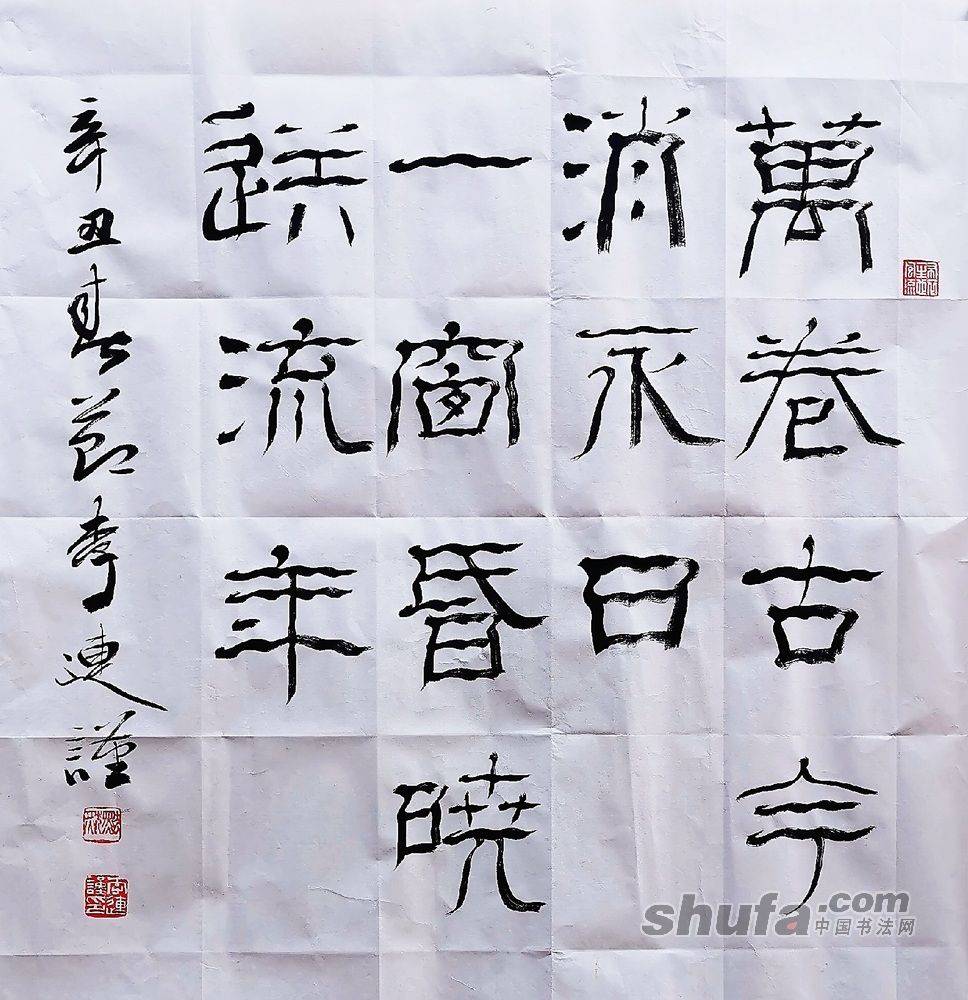 萬卷古今
消永日
一窗昏曉
送流年
辛丑春節 連謹
shufa.com
中国书法网